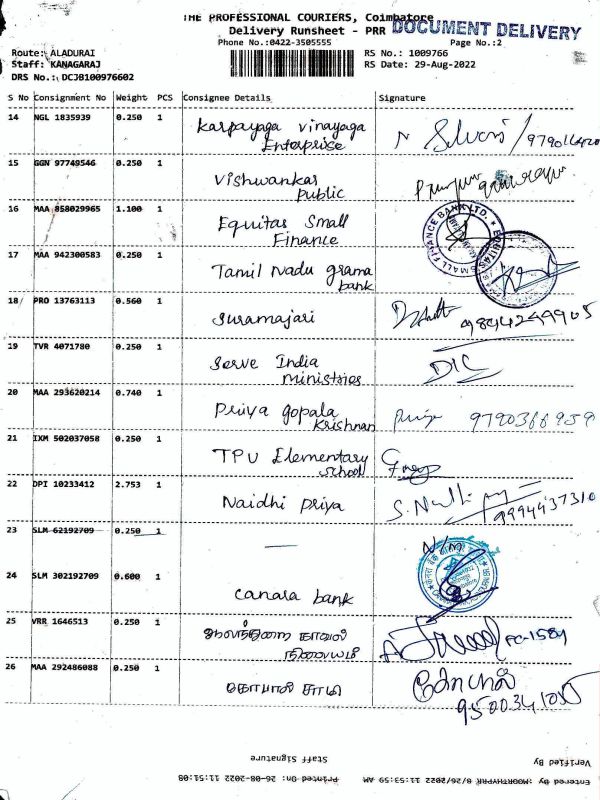 THE PROFESSIONAL COURIERS, Coimbatore
Delivery Runsheet - PRR DOCUMENT DELIVERY
Phone No.:0422-3505555 Page No.:2
Route: ALADURAI RS No.: 1009766
Staff: KANAGARAJ RS Date: 29-Aug-2022
DRS No.: DCJB100976602
S No Consignment No Weight PCS Consignee Details Signature
14 NGL 1835939 0.250 1 Karpayaga vinayaga
Enterprise
15 GGN 97749546 0.250 1 Vishwankar
Public
16 MAA 858029965 1.100 1 Equitas Small
Finance
17 MAA 942300583 0.250 1 Tamil Nadu grama
bank
18 PRO 13763113 0.560 1 Suramajari
9844249905
19 TVR 4071780 0.250 1 Serve India
Ministries
20 MAA 293620214 0.740 1 Priya gopala
Krishnan
9790366959
21 IXM 502037058 0.250 1 TPU Elementary
School
22 DPI 10233412 2.753 1 Naidhi Priya
9994437310
23 SLM 62192709 0.250 1 — N/m
24 SLM 302192709 0.600 1 Canara bank
25 VRR 1646513 0.250 1 காவல்
நிலையம் PC-1584
26 MAA 292486088 0.250 1 கோபால் சாமி கோபால்
Staff Signature Verified By
Printed On: 26-08-2022 11:51:08 Entered By :MOORTHYPRR 8/26/2022 11:53:59 AM